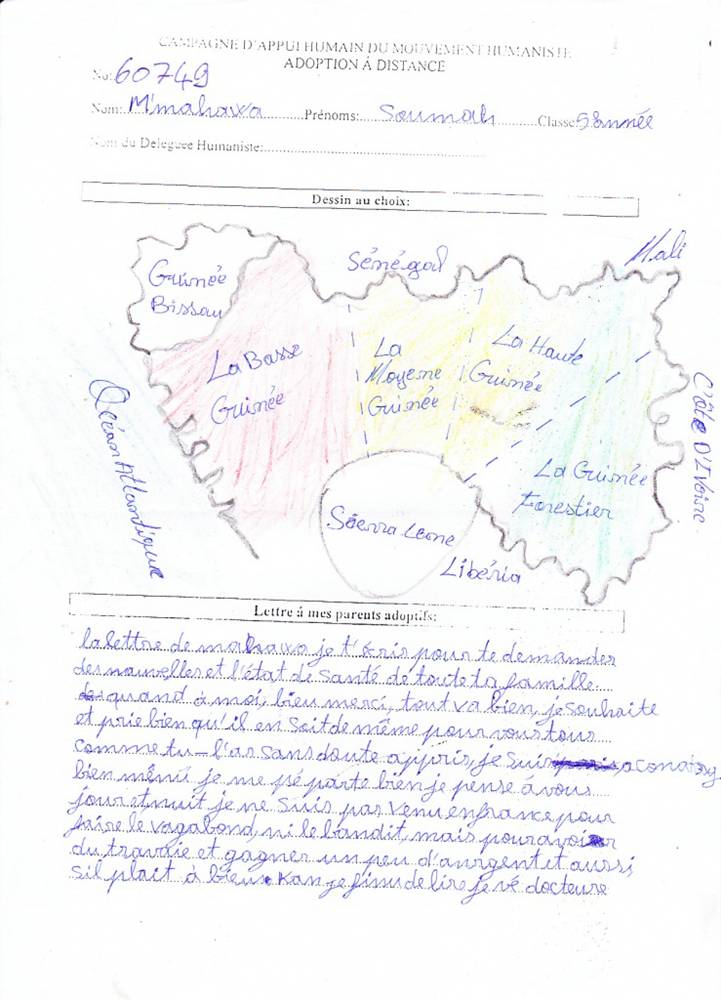 CAMPAGNE D'APPUI HUMAIN DU MOUVEMENT HUMANISTE
ADOPTION Á DISTANCE
No: 60749
Nom: M'mahawa Prénoms: Soumah Classe 5è année
Nom du Deleguee Humaniste:
Dessin au choix:
Sénégal
Mali
Guinée
Bissau
La Basse
Guinée
La
Moyenne
Guinée
La Haute
Guinée
La Guinée
Forestier
Océan Atlantique
Côte D'Ivoire
Sierra Leone
Libéria
Lettre á mes parents adoptifs:
la lettre de mahawa je t'écris pour te demander
des nouvelles et l'état de Santé de toute ta famille.
quand à moi, bieu merci, tout va bien, je souhaite
et prie bien qu'il en soit de même pour vous tous
comme tu l'as sans doute appris, je suis a conakry
bien je me pé parte bien je pense á vous
jour et nuit je ne suis pas venu en france pour
faire le vagabond, ni le bandit, mais pour avoir
du travaie et gagner un peu d'anrgent et aussi
sil plait à bieu. Kan je finu de lire je vé docteure